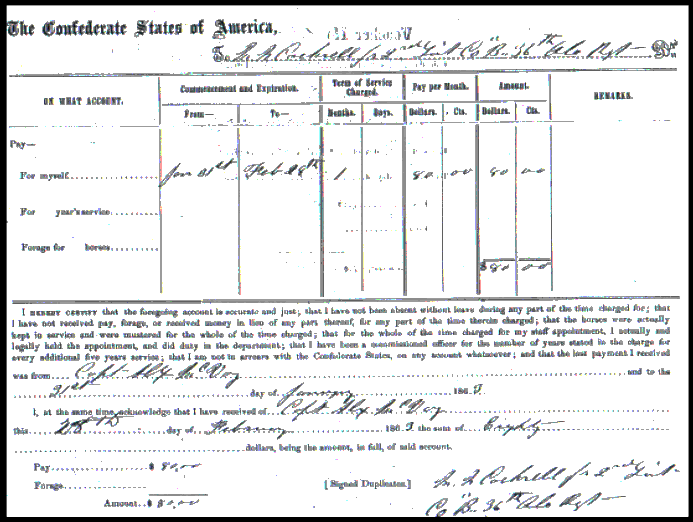 The Confederate States of America,
To Cockrell jr 2nd Lieut Co "B" 36th Ala Regt — Dr
ON WHAT ACCOUNT. Commencement and Expiration. Term of Service Charged. Pay per Month. Amount. REMARKS.
From— To— Months. Days. Dollars. Cts. Dollars. Cts.
Pay—
For myself Jan 31st Feb 28th 1 80 00 80 00
For year's service
Forage for horses
$80 00
I HEREBY CERTIFY that the foregoing account is accurate and just; that I have not been absent without leave during any part of the time charged for; that
I have not received pay, forage, or received money in lieu of any part thereof, for any part of the time therein charged; that the horses were actually
kept in service and were mustered for the whole of the time charged; that for the whole of the time charged for my staff appointment, I actually and
legally held the appointment, and did duty in the department; that I have been a commissioned officer for the number of years stated in the charge for
every additional five years service; that I am not in arrears with the Confederate States, on any account whatsoever; and that the last payment I received
was from Capt Alex McVoy and to the
31st day of January 1863.
I, at the same time, acknowledge that I have received of Capt Alex McVoy
this 28th day of February 1863 the sum of Eighty
dollars, being the amount, in full, of said account.
Pay $ 80,00
Forage
Amount $ 80,00
[Signed Duplicates.]
Cockrell jr 2nd Lieut
Co "B" 36th Ala Regt —